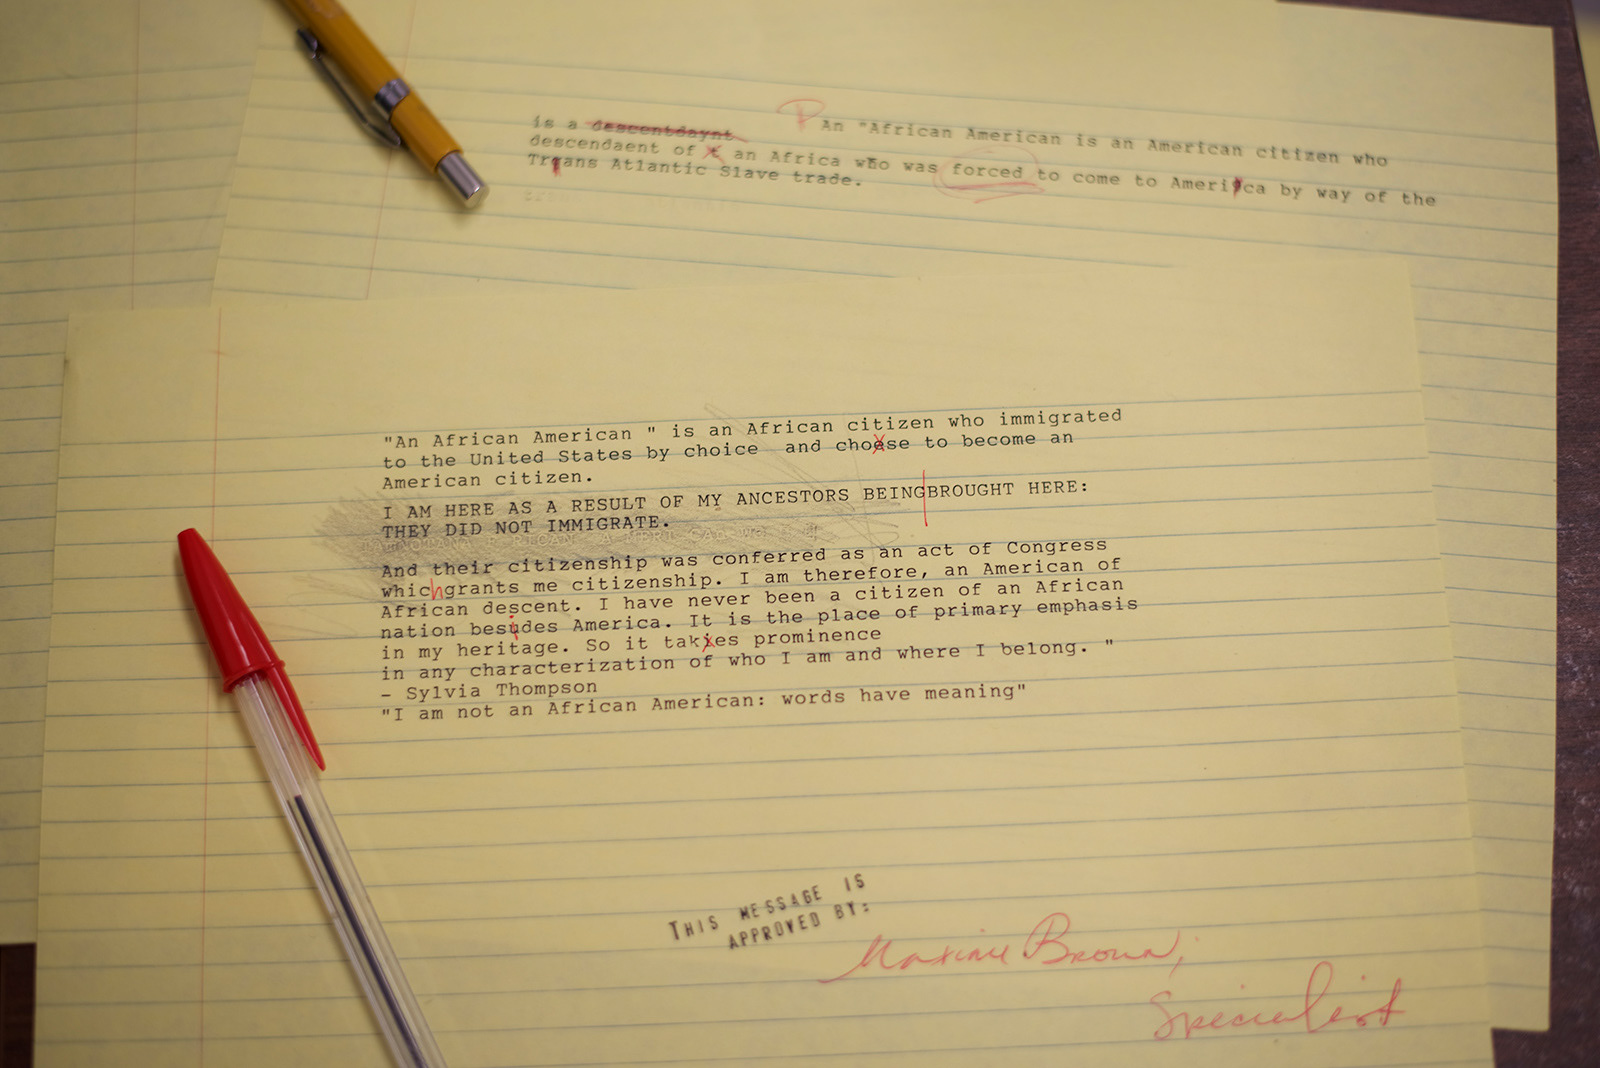 An "African American is an American citizen who
is a descentdaynt
descendaent of t an Africa who was forced to come to America by way of the
Trans Atlantic Slave trade.
"An African American " is an African citizen who immigrated
to the United States by choice  and choese to become an
American citizen.
I AM HERE AS A RESULT OF MY ANCESTORS BEINGBROUGHT HERE:
THEY DID NOT IMMIGRATE.
And their citizenship was conferred as an act of Congress
whichgrants me citizenship. I am therefore, an American of
African descent. I have never been a citizen of an African
nation besides America. It is the place of primary emphasis
in my heritage. So it takes prominence
in any characterization of who I am and where I belong. "
- Sylvia Thompson
"I am not an African American: words have meaning"
THIS MESSAGE IS
APPROVED BY:
Maxine Brown,
Specialist